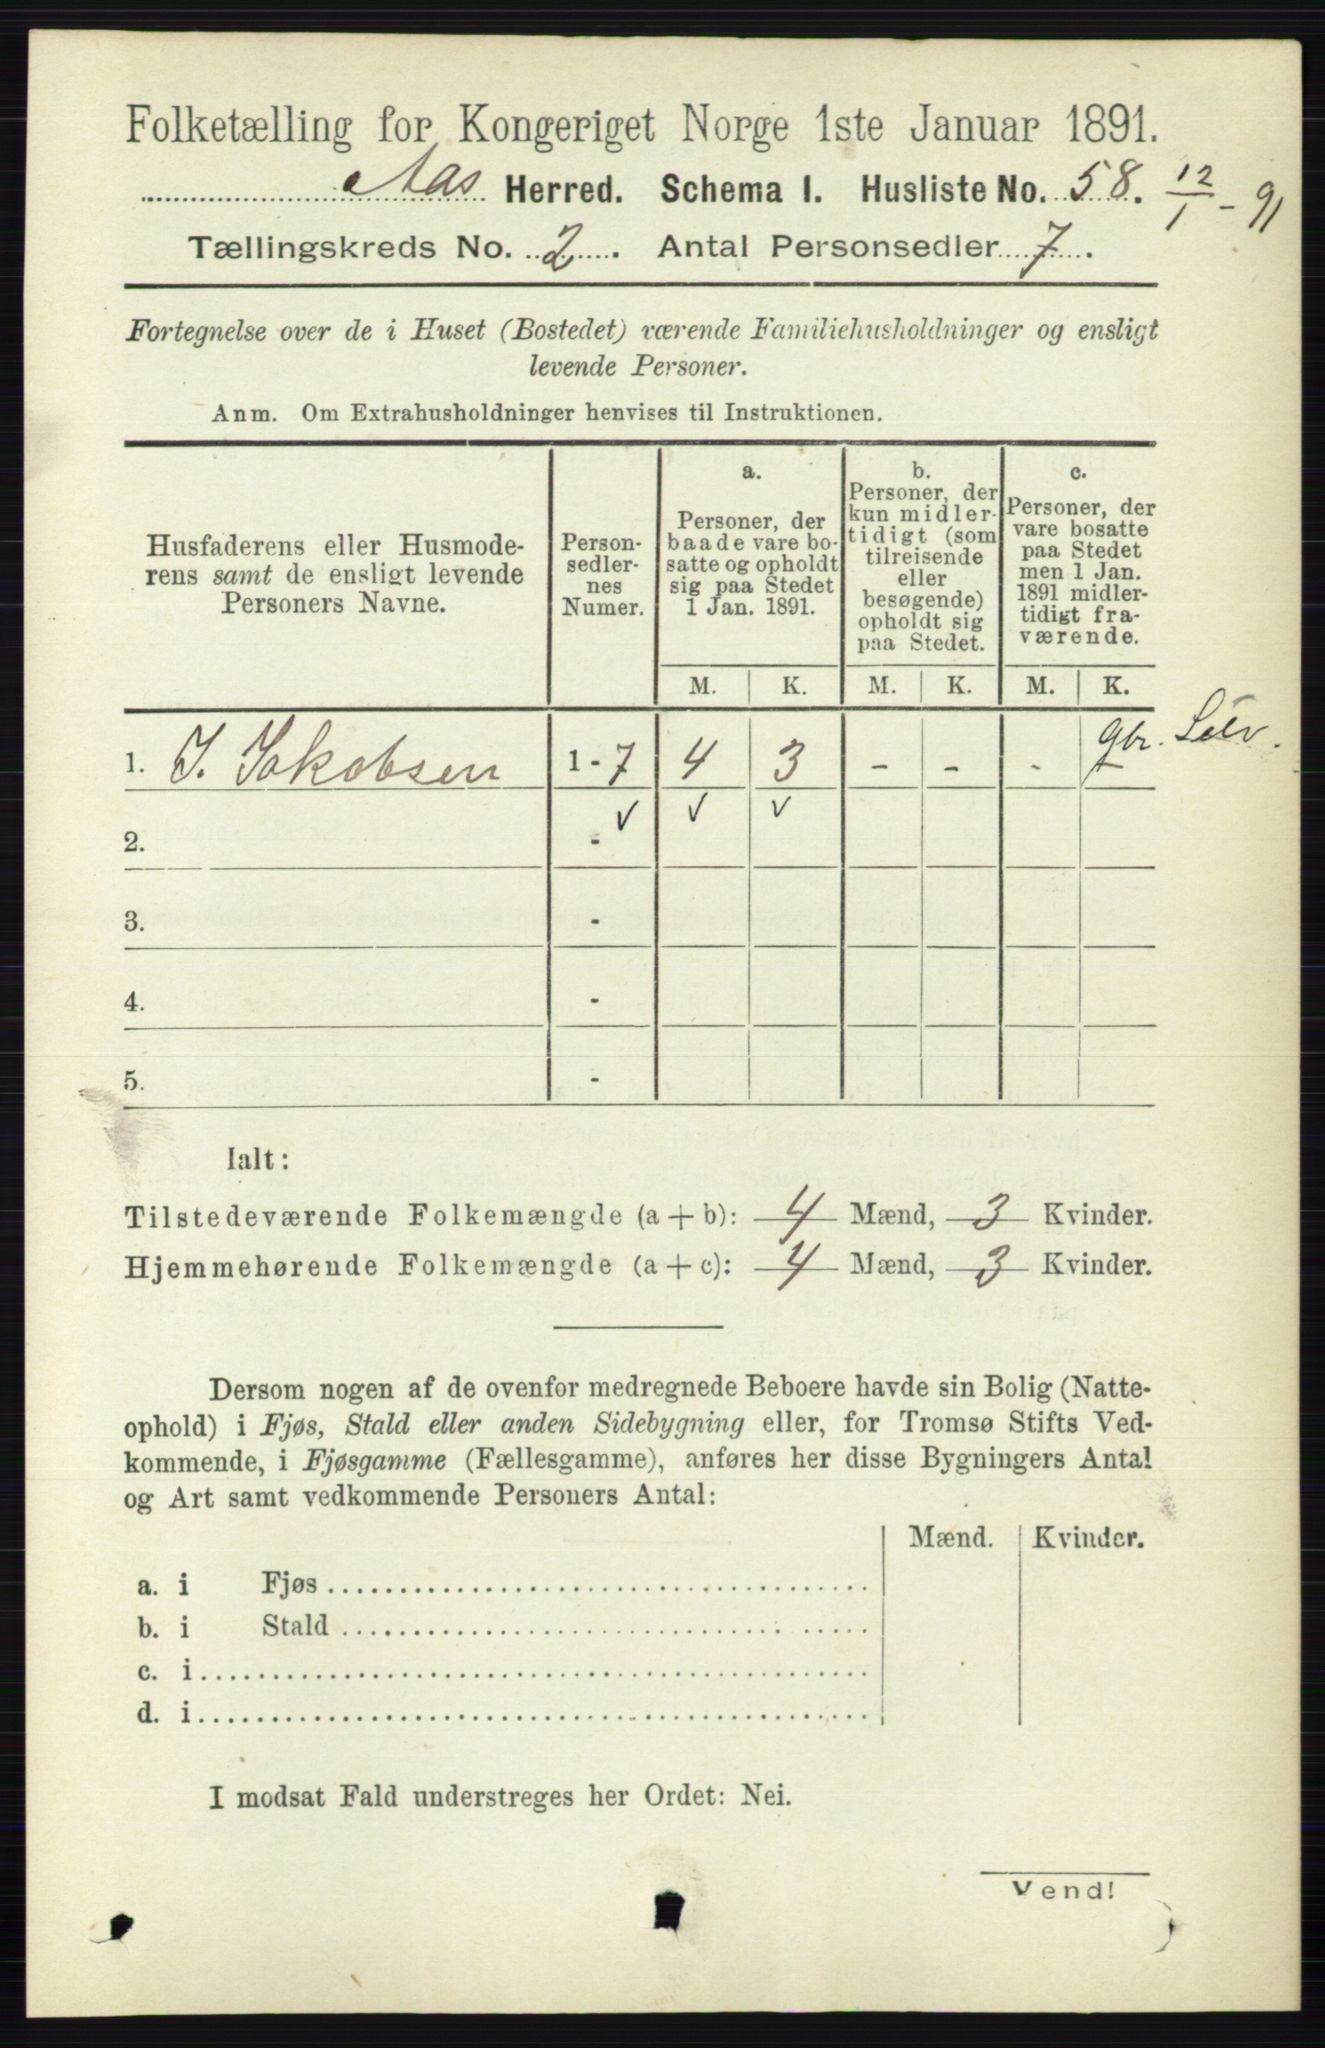 Folketælling for Kongeriget Norge 1ste Januar 1891.
Aas Herred. Schema I. Husliste No. 58. 12/1 - 91
Tællingskreds No. 2. Antal Personsedler 7.
Fortegnelse over de i Huset (Bostedet) værende Familiehusholdninger og ensligt
levende Personer.
Anm. Om Extrahusholdninger henvises til Instruktionen.
Husfaderens eller Husmode-
rens samt de ensligt levende
Personers Navne.
Person-
sedler-
nes
Numer.
a.
Personer, der
baade vare bo-
satte og opholdt
sig paa Stedet
1 Jan. 1891.
b.
Personer, der
kun midler-
tidigt (som
tilreisende
eller
besøgende)
opholdt sig
paa Stedet.
c.
Personer, der
vare bosatte
paa Stedet
men 1 Jan.
1891 midler-
tidigt fra-
værende.
M. K. M. K. M. K.
gbr.
1. J. Jakobsen 1 - 7 4 3 - - - -
2. - ✓ ✓ ✓
3. -
4. -
5. -
Ialt:
Tilstedeværende Folkemængde (a + b): 4 Mænd, 3 Kvinder.
Hjemmehørende Folkemængde (a + c): 4 Mænd, 3 Kvinder.
Dersom nogen af de ovenfor medregnede Beboere havde sin Bolig (Natte-
ophold) i Fjøs, Stald eller anden Sidebygning eller, for Tromsø Stifts Ved-
kommende, i Fjøsgamme (Fællesgamme), anføres her disse Bygningers Antal
og Art samt vedkommende Personers Antal:
Mænd. Kvinder.
a. i Fjøs
b. i Stald
c. i
d. i
I modsat Fald understreges her Ordet: Nei.
Vend!